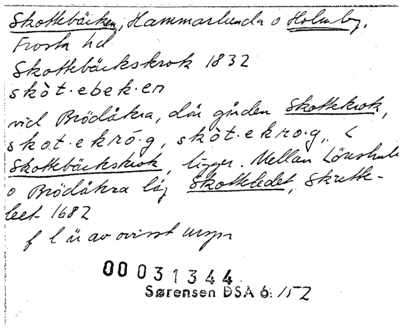 Skottebäcken, Hammarlunda o Holmby,
Frosta hd
Skottebäckskrok 1832
skòt.ebek.en
vid Brödåkra, där gården Skottekrok,
skot.ekró.g, skòt.ekro.g, <
Skottebäckskrok, ligger. Mellan Lönshult
o Brödåkra låg Skotteledet, Skotte-
leet 1682
f l är av ovisst urspr
00031344
Sørensen DSA 6:152